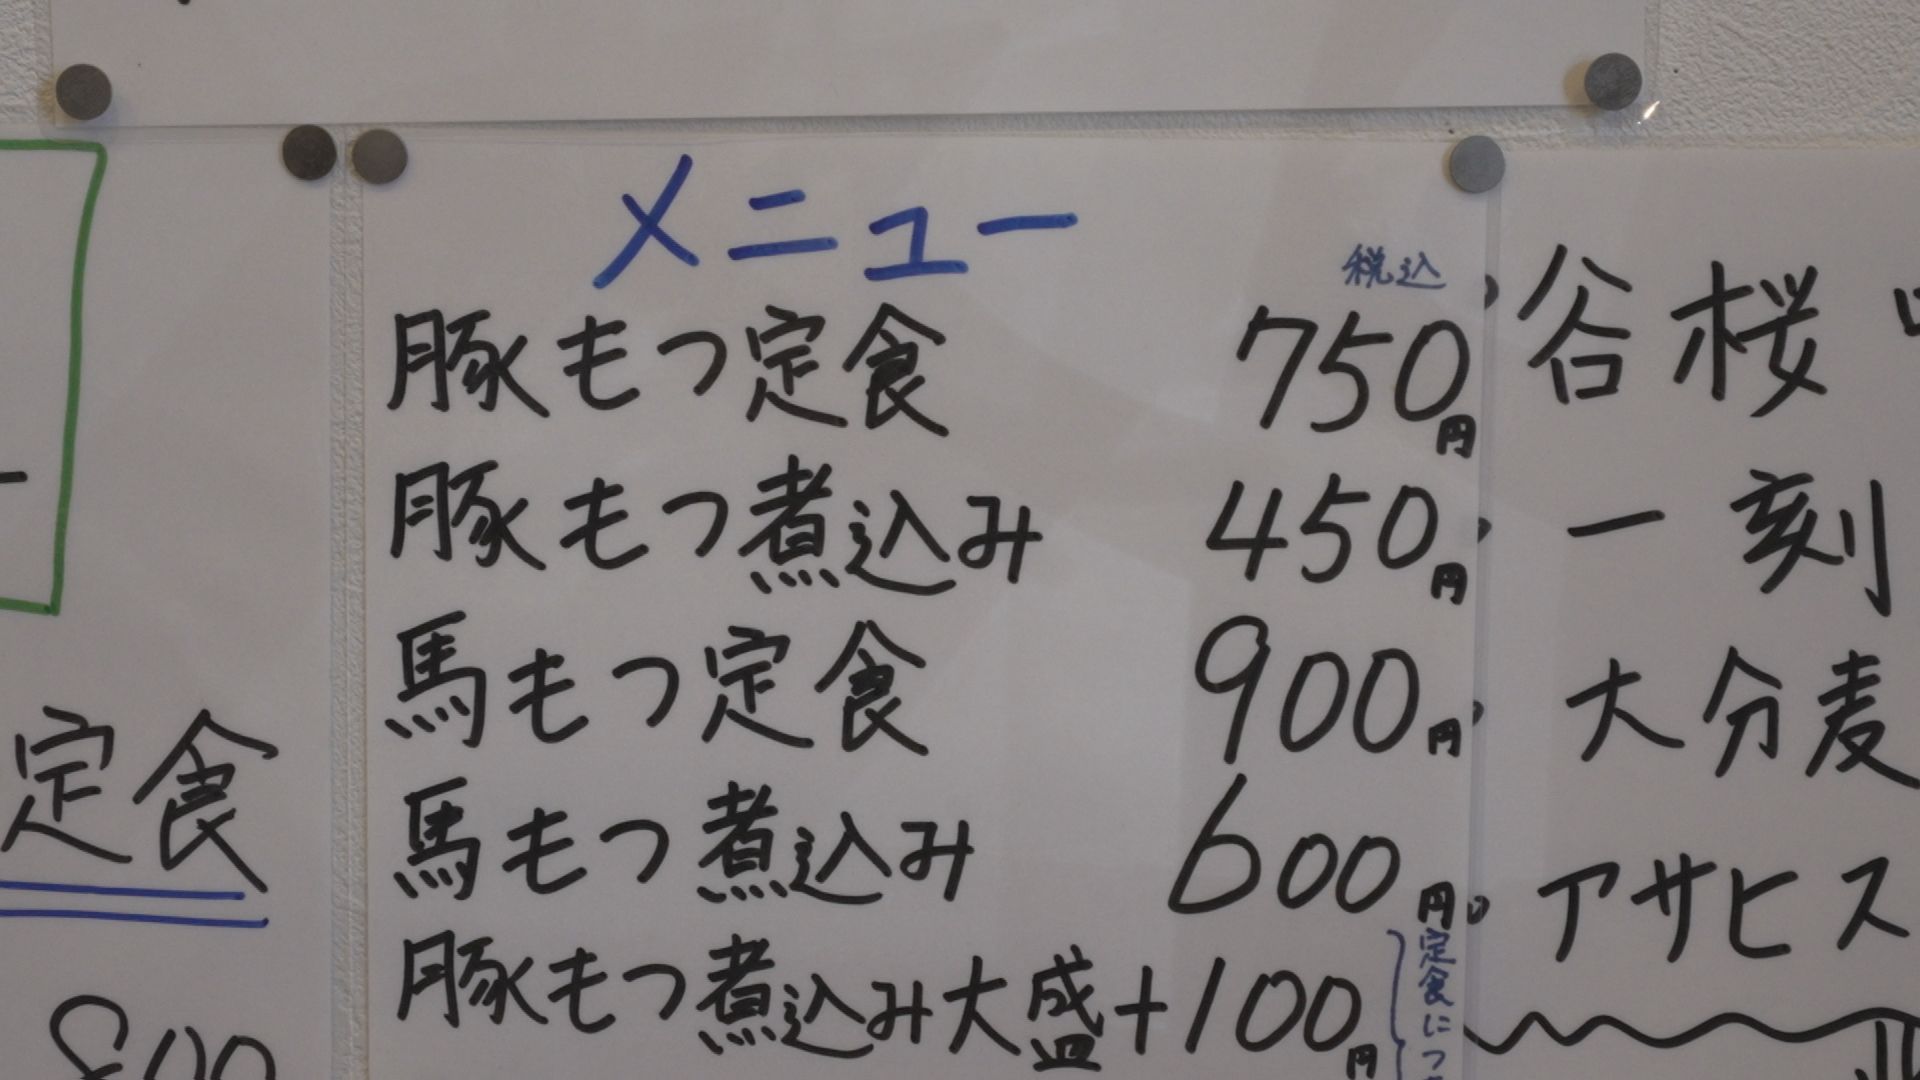 定食
800
メニュー
税込
豚もつ定食 750円
豚もつ煮込み 450円
馬もつ定食 900円
馬もつ煮込み 600円
豚もつ煮込み大盛+100円
定食につ
谷桜
一刻
大分麦
アサヒス